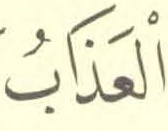 الْعَذَابُ